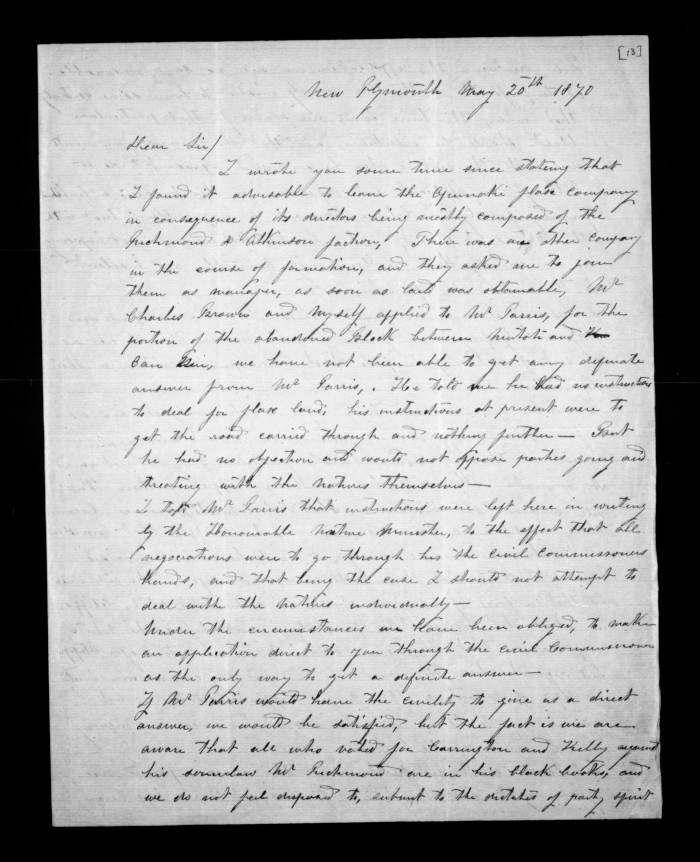 [13]
New Plymouth May 20th 1870
Dear Sir/
I wrote you some time since stating that
I found it advisable to leave the flax company
in consequence of its directors being mostly composed of the
Richmond & Atkinson faction, There was an other Company
in the course of formation, and they asked me to join
them as manager, as soon as land was obtainable, Mr
Charles Brown and myself applied to Mr Parris, for the
portion of the abandoned Block between and
we have not been able to get any definate
answer from Mr Parris, . He told me he had no instructions
to deal for flax land, his instructions at present were to
get the road carried through and nothing further — But
he had no objection and would not oppose parties going and
treating with the natives themselves —
I told Mr Parris that instructions were left here in writing
by the Honourable Native Minister, to the effect that all
negociations were to go through his the Civil Commissioners
hands, and that being the case I should not attempt to
deal with the Natives individually —
Under the circumstances we have been obliged, to make
an application direct to you through the Civil Commissioner
as the only way to get a definite answer —
If Mr Parris would have the civility to give us a direct
answer, we would be satisfied, but the fact is we are
aware that all who voted for Carrington and Kelly against
his soninlaw Mr Richmond are in his black books, and
we do not feel disposed to, submit to the dictates of party spirit